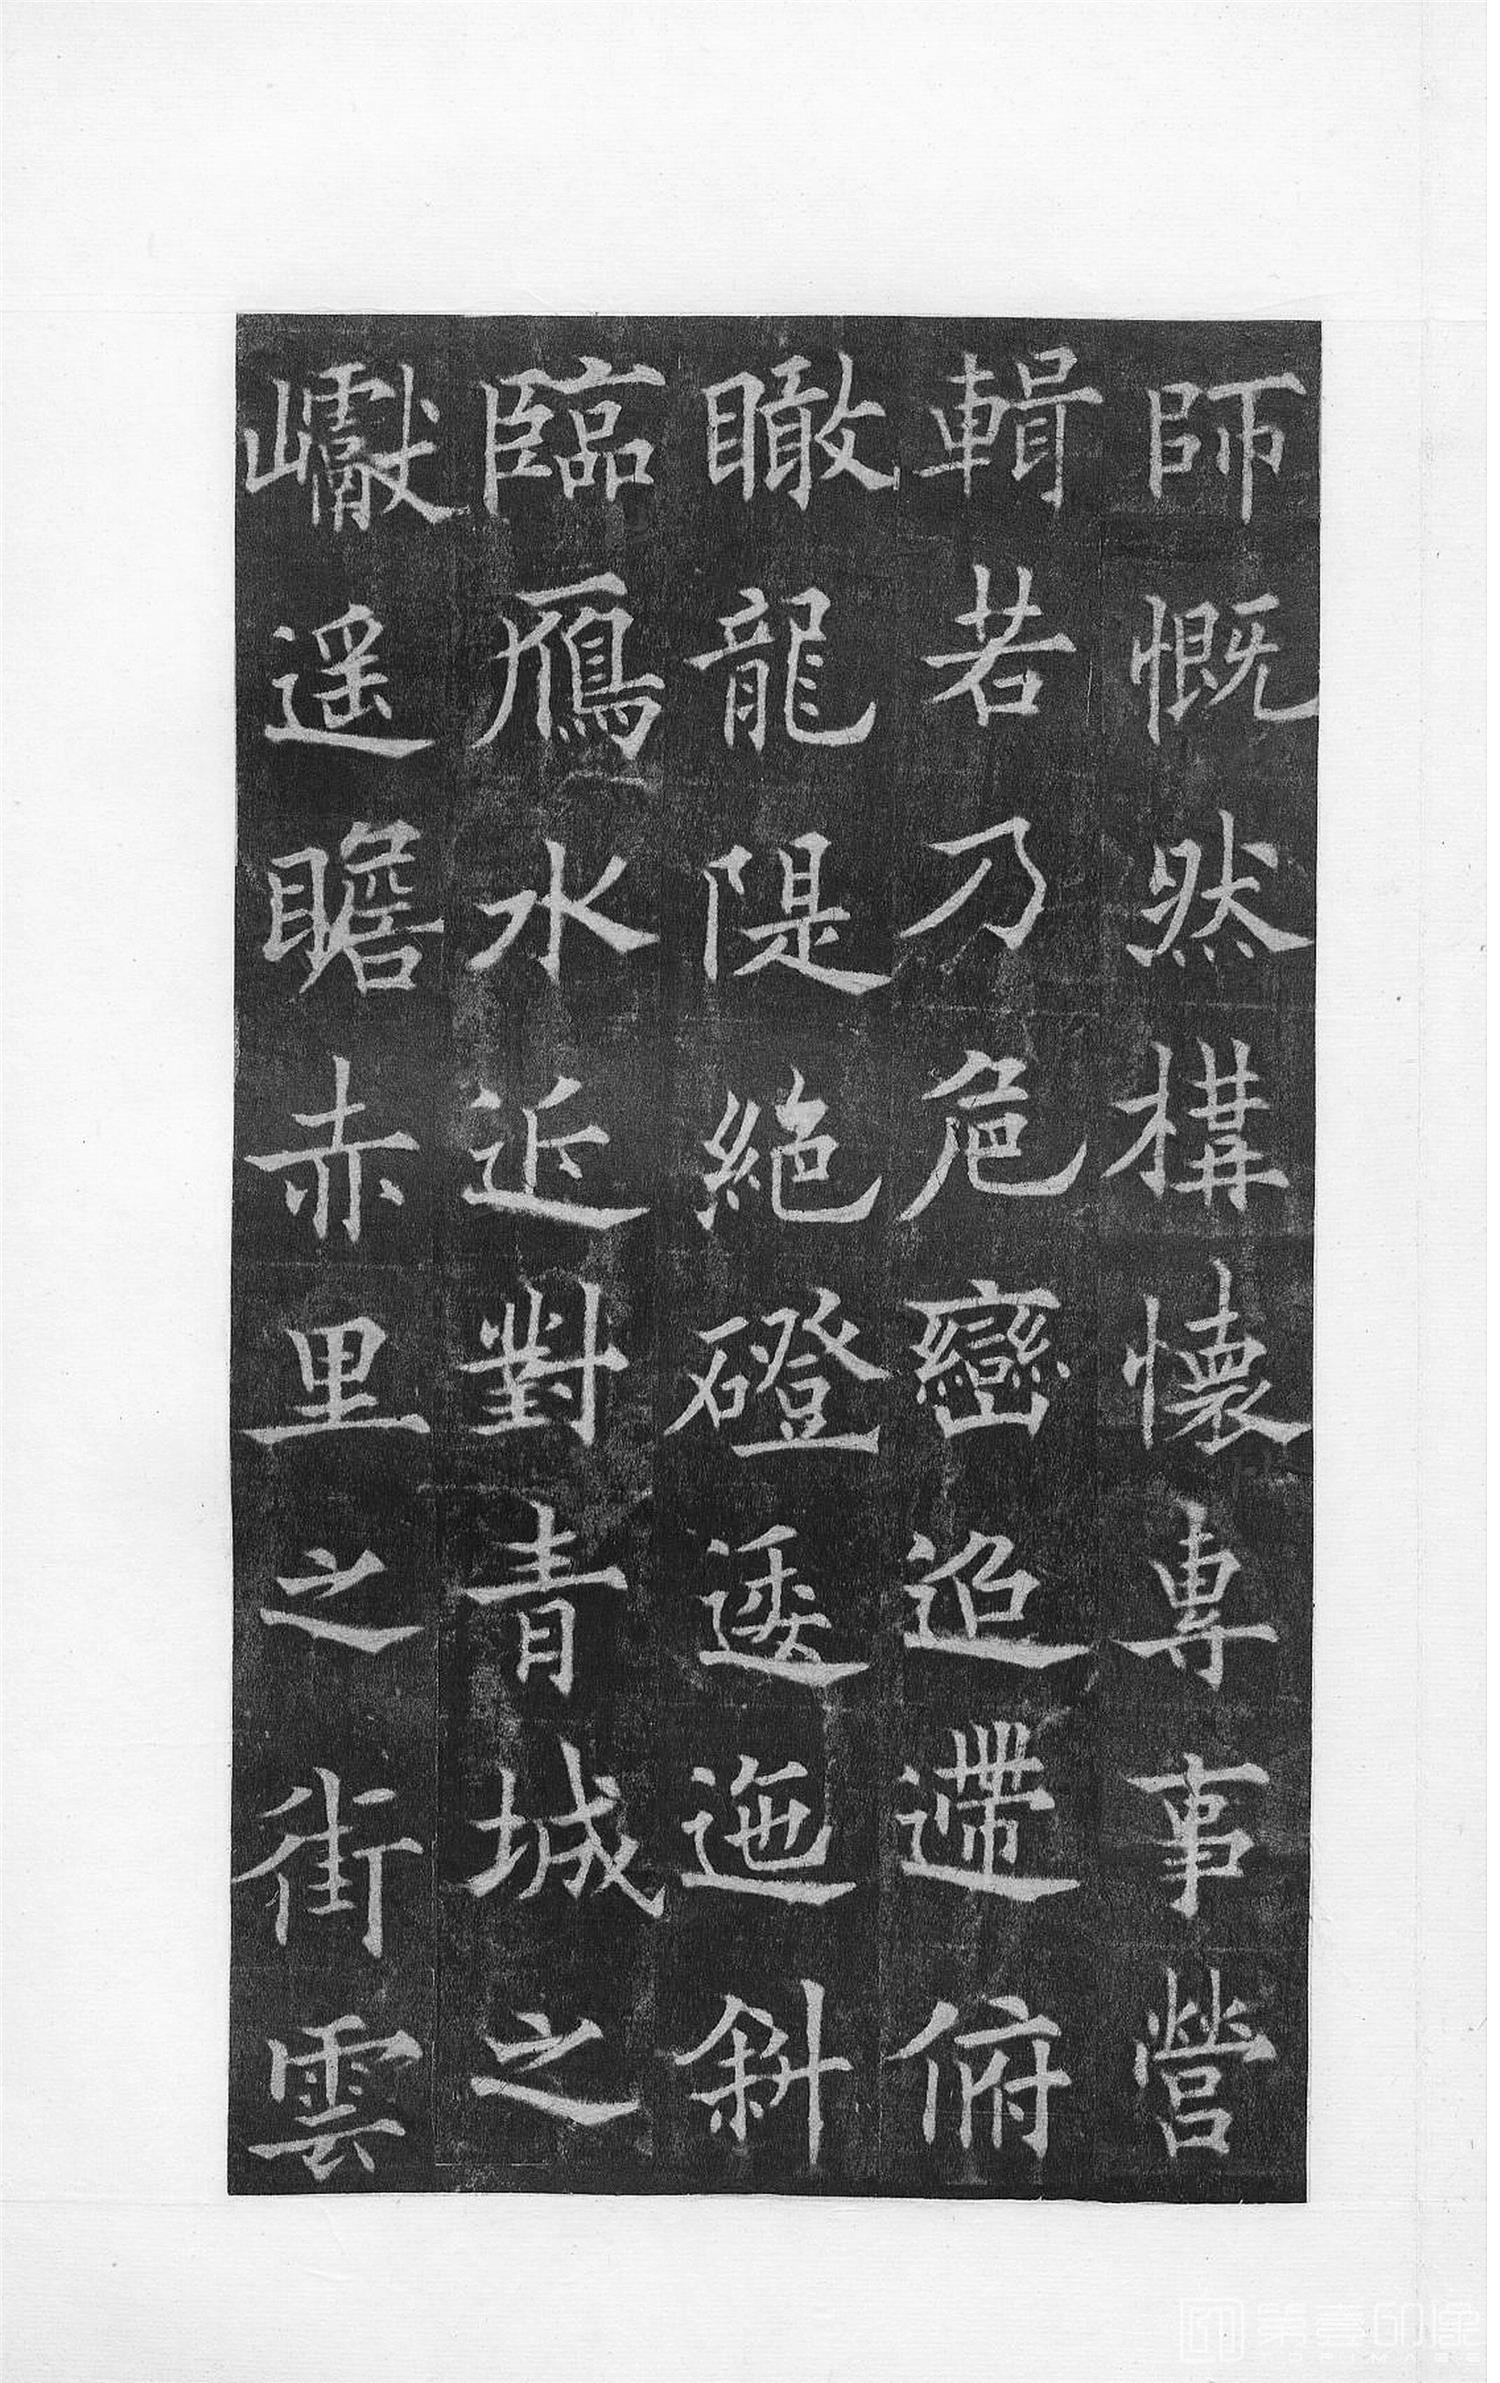 師慨然構懷專事營
輯若乃危巒迢遰俯
瞰龍隄絶磴逶迤斜
臨鴈水近對青城之
巘遥瞻赤里之街雲
第壹印像